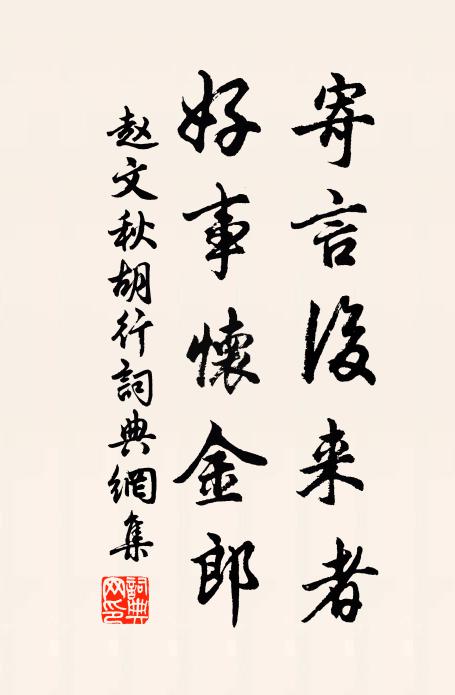 寄言後来者
好事懷金郎
赵文秋胡行詞典網集
詞典网印